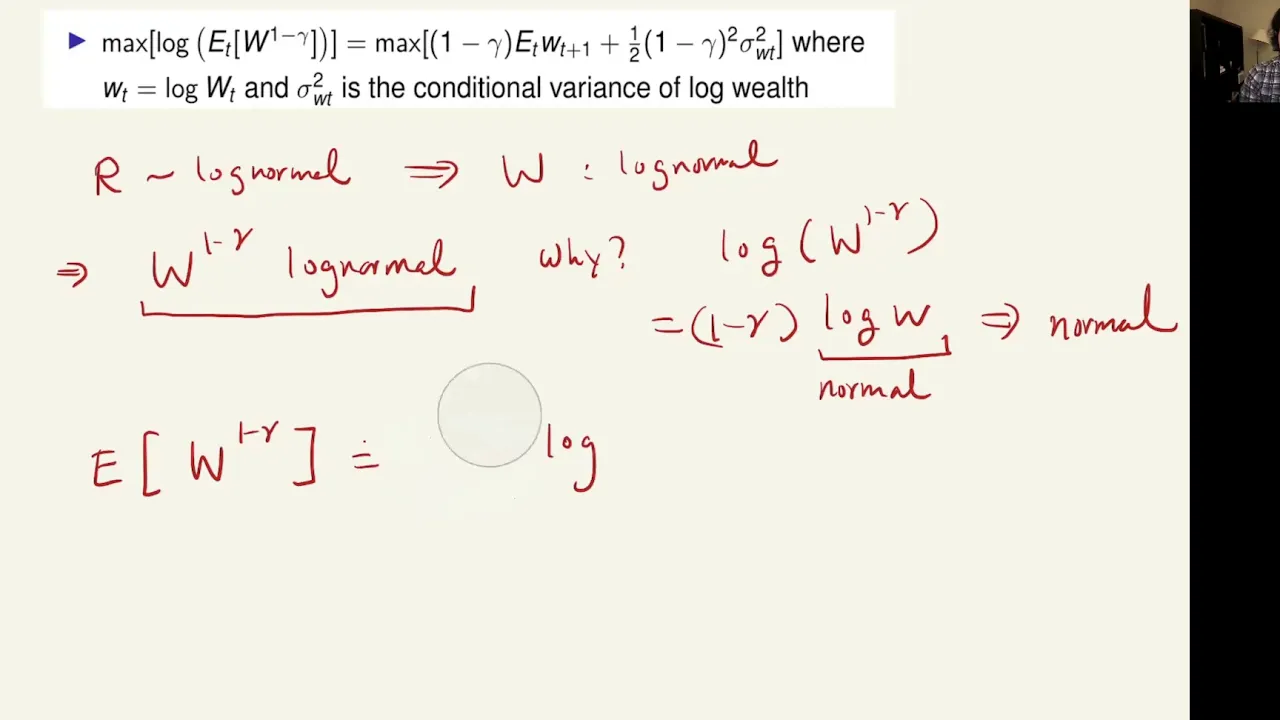 ▶ max[log (E_t[W^{1−γ}])] = max[(1 − γ)E_t w_{t+1} + ½(1 − γ)²σ²_{wt}] where
w_t = log W_t and σ²_{wt} is the conditional variance of log wealth
R ~ lognormal ⇒ W : lognormal
⇒ W^{1-γ} lognormal why? log(W^{1-γ})
= (1-γ) log W ⇒ normal
normal
E[W^{1-γ}] = log